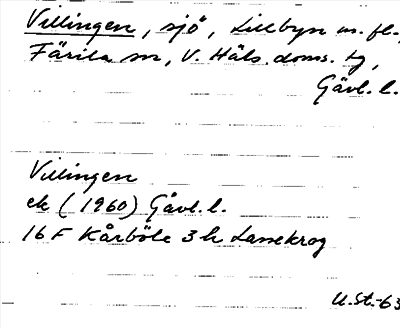 Villingen, sjö, Lillbyn m. fl.,
Färila sn, V. Häls. doms. tg,
Gävl. l.
Villingen
ek (1960) Gävl. l.
16 F Kårböle 3 h Lassekrog
U. St.-63